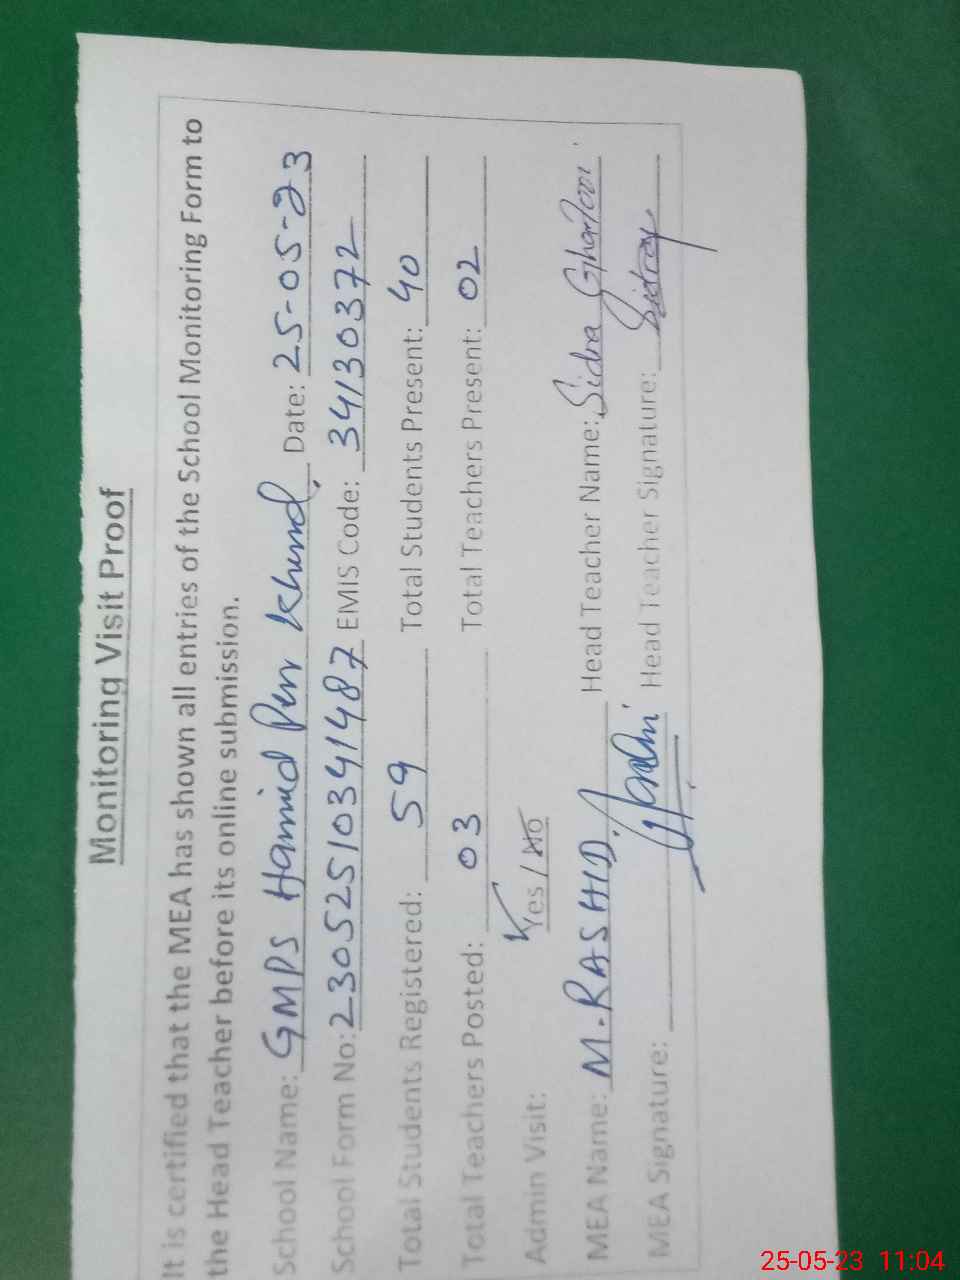 Monitoring Visit Proof
It is certified that the MEA has shown all entries of the School Monitoring Form to
the Head Teacher before its online submission.
School Name: GMPS Hamid Pur Khurd Date: 25-05-23
School Form No: 23052510341487 EMIS Code: 34130372
Total Students Registered: 59 Total Students Present: 40
Total Teachers Posted: 03 Total Teachers Present: 02
Admin Visit: Yes / No
MEA Name: M. RASHID Head Teacher Name: Sidra
MEA Signature: Head Teacher Signature: Sidra
25-05-23 11:04